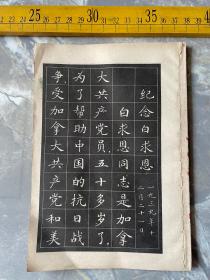 25 30 35
纪念白求恩
一九三九年
十二月二十一日
白求恩同志是加拿
大共产党员,五十多岁了,
为了帮助中国的抗日战
争,受加拿大共产党和美